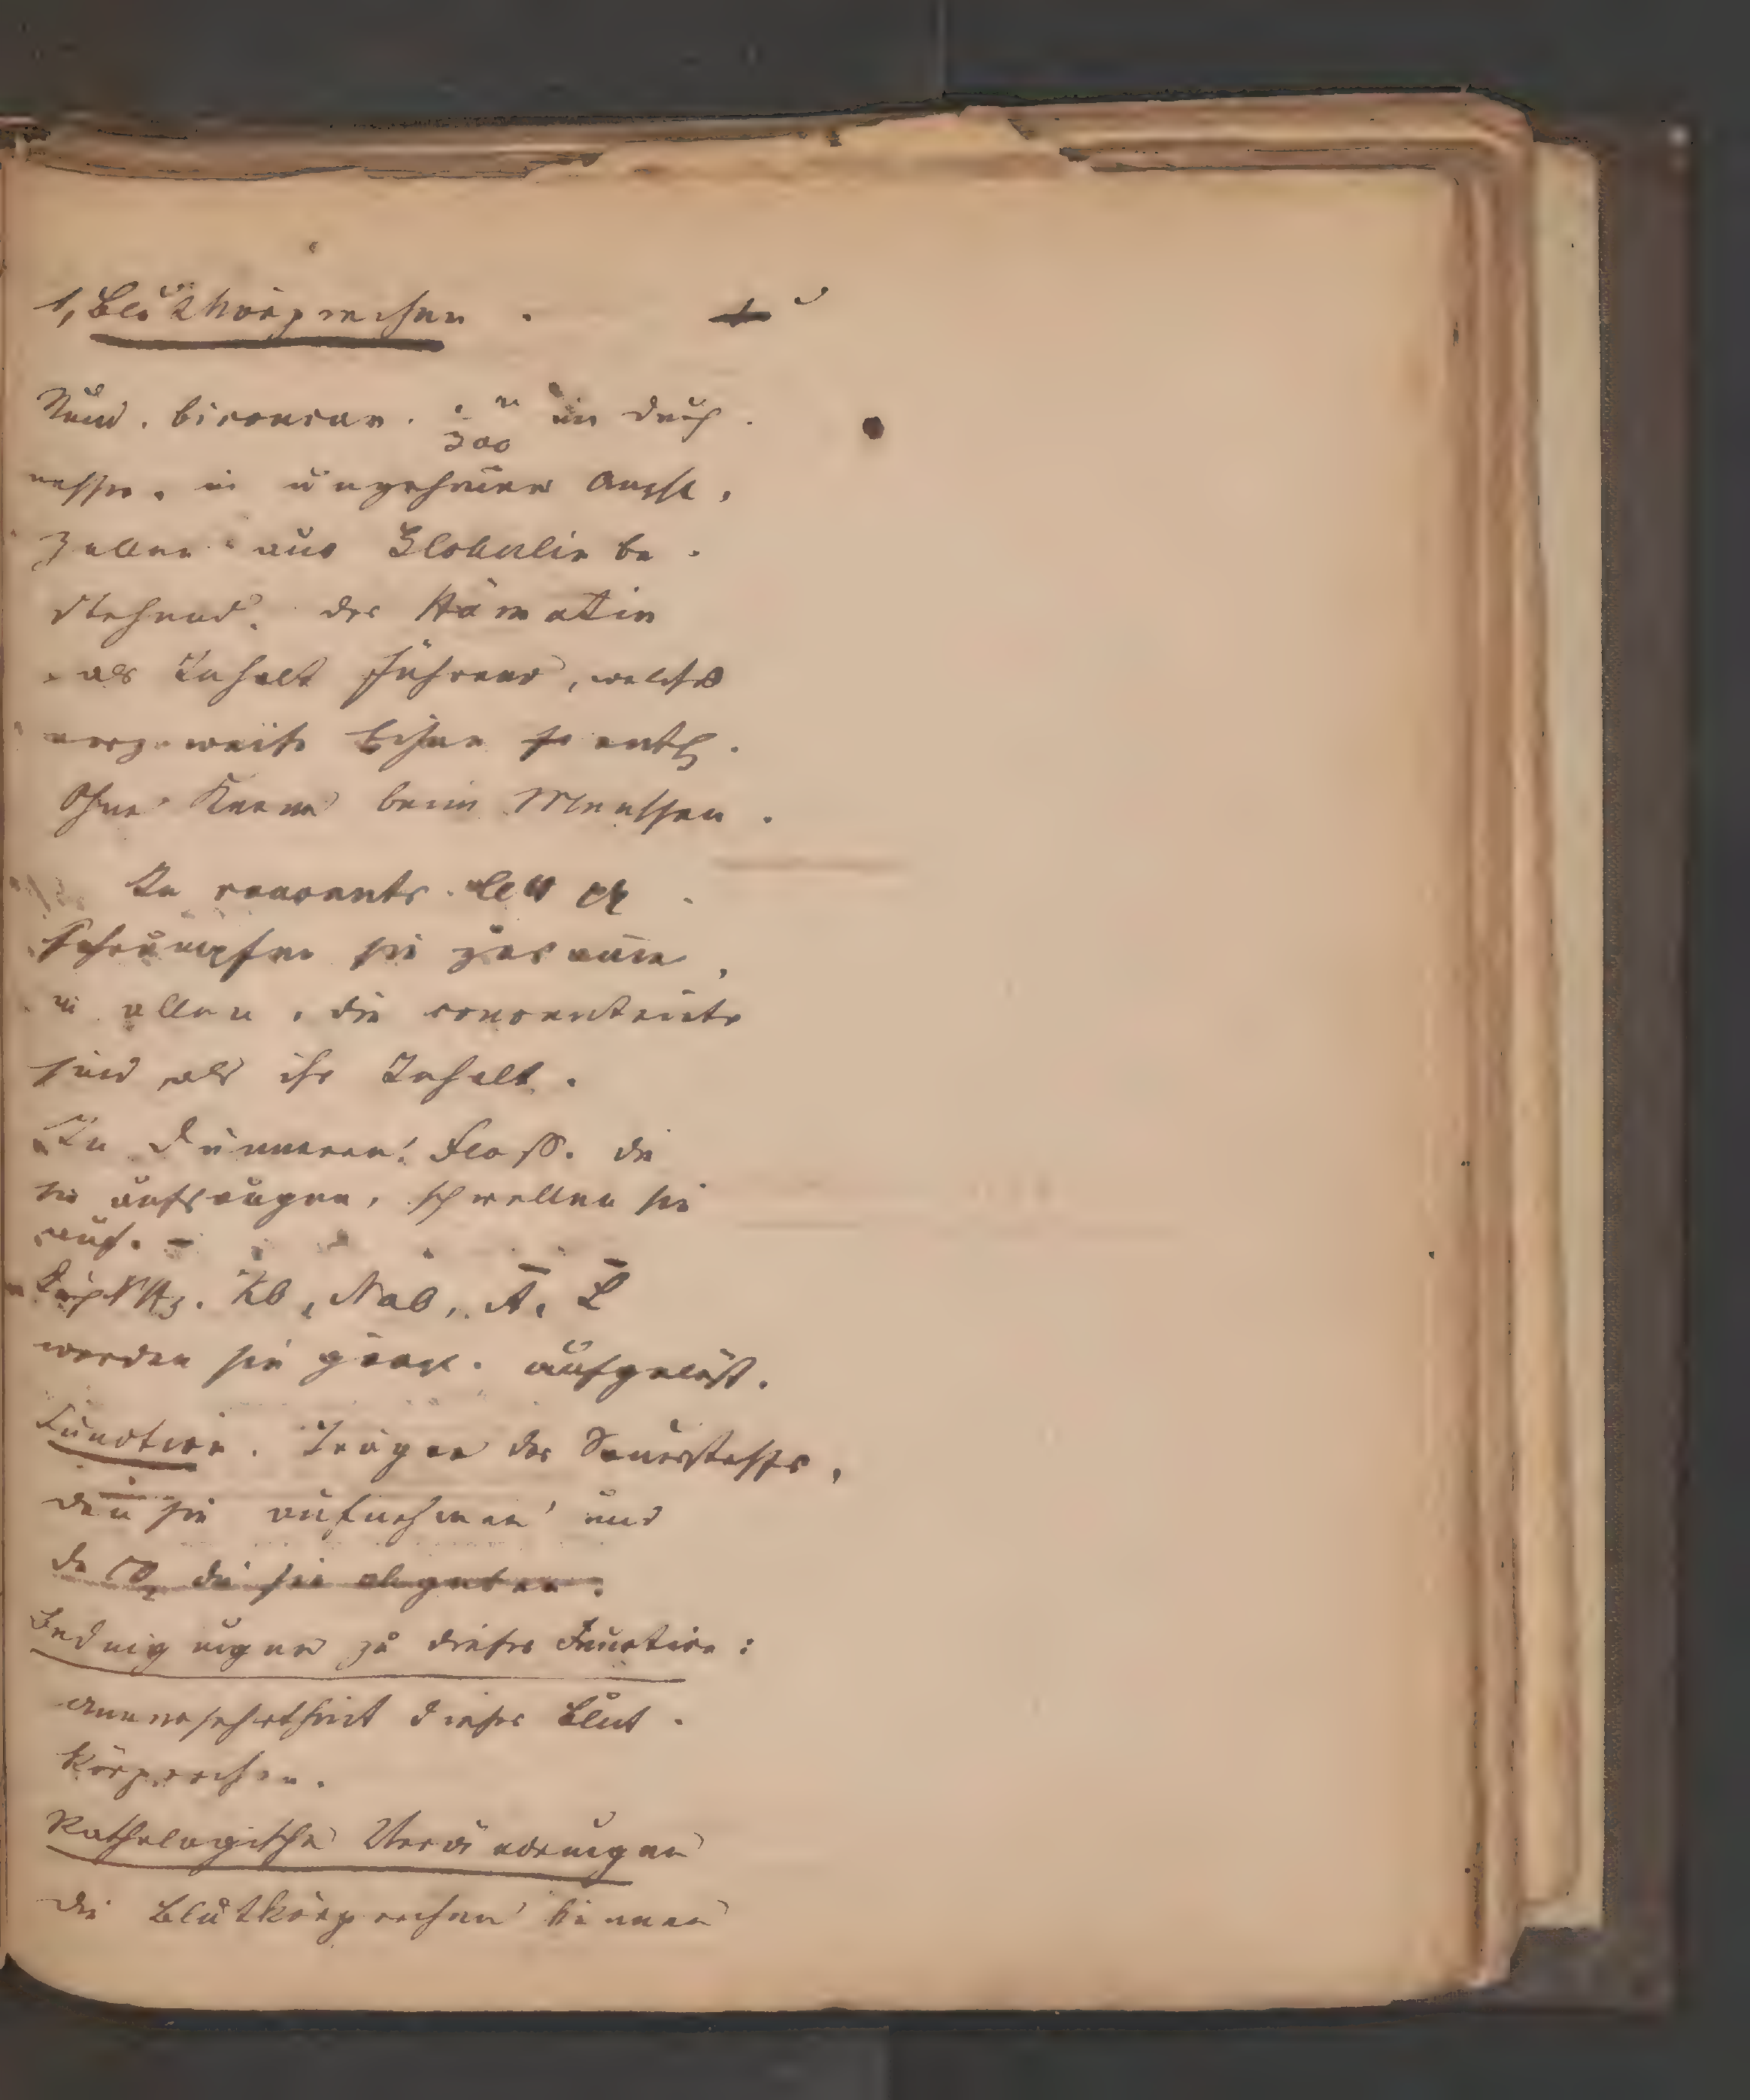 1, Blutkörperchen.
Rund. biconcav. 1/300 ''' im Durch-
messer. in ungeheurer Anzahl,
Zellen aus Globulin be-
stehend. das Hämatin
als Inhalt führend, welches
vorzugsweise Eisen enth.
Ohne Kern beim Menschen.
In concentr.
schrumpfen sie zusamen,
in allen, die concentrirter
sind als ihr Inhalt.
In dünneren Flüss. die
sie aufsaugen, schwellen sie
auf. -
Durch NH3. KO, NaO, A,
werden sie gänzl. aufgelöst.
Function. Träger des Sauerstoffs,
den sie aufnehmen und
der CO2 die sie abgeben.
Bedingungen zu dieser Function:
Unversehrtheit dieser Blut-
körperchen.
Pathologische Veränderungen
Die Blutkörperchen können